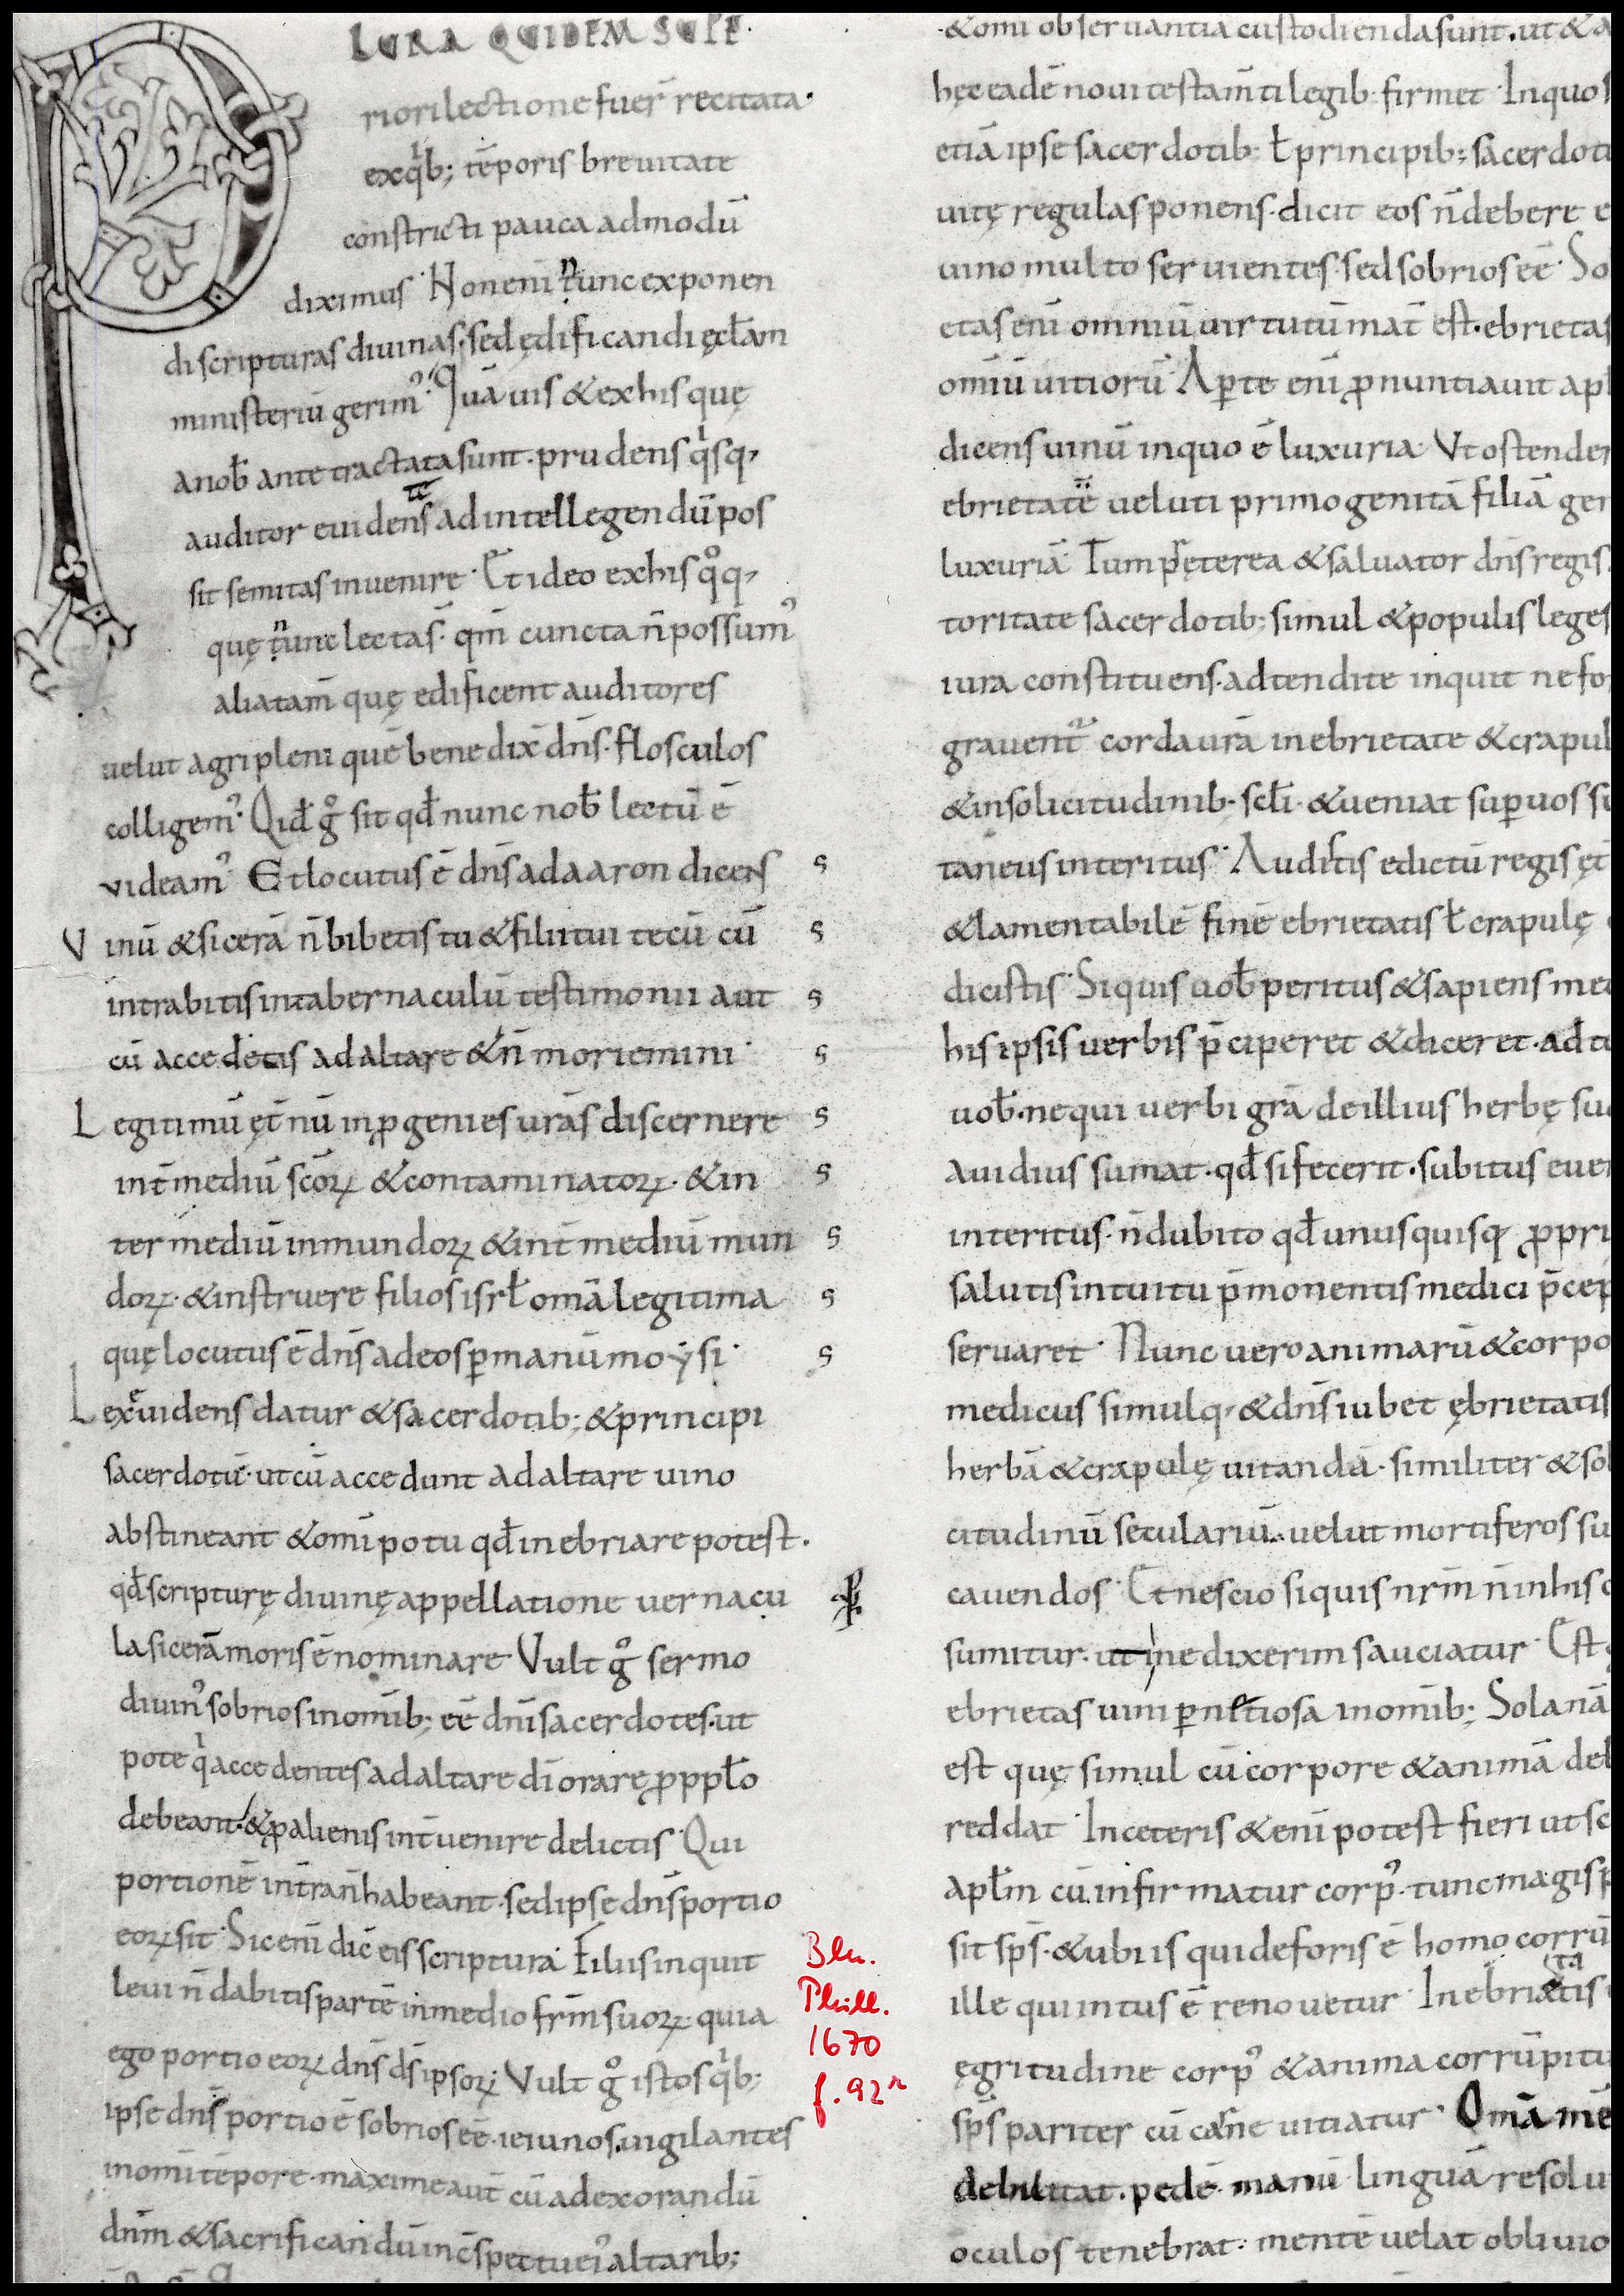 PLURA QUIDEM SUPE
riori lectione fuer̄ recitata·
ex qͥb; tēporis brevitate
constricti pauca admodū
diximus· Non eni ͫtunc exponen
di scripturas divinas· sed ędificandi ęcłam
ministeriū gerim᾿· Quāvis & ex his quę
a nob̄ ante tractata sunt· prudens qͥsq,
auditor evidens̄ ad intellegendū pos
sit semitas invenire· Et ideo ex his qͦq,
quę tunc lectas̄· qm̄ cuncta n̄ possum᾿
alia tam̄ quę edificent auditores
velut agri pleni quē benedix̄ dn̄s· flosculos
colligem᾿· Qid̄ gͦ sit qd̄ nunc nob̄ lectū ē
videam᾿· Et locutus ē dn̄s ad aaron dicens
Vinū & sicerā n̄ bibetis tu & filii tui tecū cū
intrabitis in tabernaculū testimonii aut
cū acceditis ad altare & n̄ moriemini·
Legitimū ęt̄nū in ꝓgenies vrās discernere
int̄ mediū scōrꝝ & contaminatorꝝ· & in
ter mediū inmundorꝝ & int̄ mediū mun
dorꝝ· & instruere filios isrł om̄a legitima
quę locutus ē dn̄s ad eos ꝑ manū moẏsi·
Lex evidens datur & sacerdotib; & principi
sacerdotū· ut cū accedunt ad altare vino
abstineant & om̄i potu qd̄ inebriare potest·
qd̄ scripturę divinę appellatione vernacu
la sicerā moris ē nominare Vult gͦ sermo
divin᾿ sobrios in om̄ib; eē dn̄i sacerdotes· ut
pote qͥ accedentes ad altare dī orare ꝓ ppło
debeant· & ꝓ alienis int̄venire delictis· Qui
portionē in t̄ra n̄ habeant· sed ipse dn̄s portio
eorꝝ sit· Sic eni dic̄ eis scriptura· Filiis inquit
levi n̄ dabitis partē in medio frm̄ suorꝝ· quia
ego portio eorꝝ dn̄s ds̄ ipsorꝝ· Vult gͦ istos qͥb;
ipse dn̄s portio ē sobrios eē· ieiunos· vigilantes
in om̄i tēpore· maxime aut̄ cū ad exorandū
dn̄m & sacrificandū in c̄spectu ei᾿ altarib;
& om̄i observantia custodienda sunt· ut & a
hęc eadē novi testam̄ti legib· firmet· In quo
etiā ipse sacerdotib· ł principib; sacerdot
vitę regulas ponens· dicit eos n̄ debere e
vino multo servientes· sed sobrios eē· So
etas eni omniū virtutū mat̄ est· ebrietas
om̄iū vitiorū· Aꝑte eni ꝓnuntiavit apł
dicens vinū in quo ē luxuria· Ut ostender
ebrietatē veluti primogenitā filiā ger
luxuriā· Tum pręterea & salvator dn̄s regis
toritate sacerdotib; simul & populis leges
iura constituens· adtendite inquit ne fo
gravent᷑ corda vrā in ebrietate & crapul
& in solicitudinib· scłi· & veniat suꝑ vos su
taneus interitus· Auditis edictū regis ęt
& lamentabilē finē ebrietatis ł crapulę
dicistis· Si quis vob̄ peritus & sapiens me
his ipsis verbis p̄ciperet & diceret· adte
vob̄· ne qui verbi grā de illius herbę su
avidius sumat· qd̄ si fecerit· subitus eve
interitus· n̄ dubito qd̄ unusquisq ꝓpri
salutis intuitu p̄monentis medici p̄cep
servaret· Nunc vero animarū & corpo
medicus simulq, & dn̄s iubet ębrietatis
herbā & crapulę vitandā· similiter & sol
citudinū seculariū· velut mortiferos su
cavendos· Et nescio si quis nrm̄ n̄ in his
sumitur· ut ne dixerim sauciatur· Est
ebrietas vini ꝑnitiosa in om̄ib; Sola nā
est quę simul cū corpore & animā deb
reddat· In ceteris & eni potest fieri ut sc
apłm cū infirmatur corp᾿· tunc magis p
sit sps̄· & ubi is qui deforis ē homo corrū
ille qui intus ē renovetur· In ebrietatis
ęgritudine corp᾿ & anima corrūpitu
sps̄ pariter cū carne vitiatur· Om̄a mē
debilitat· pedē· manū linguā resolu
oculos tenebrat· mentē velat oblivio
Bln.
Phill.
1670
f. 92r